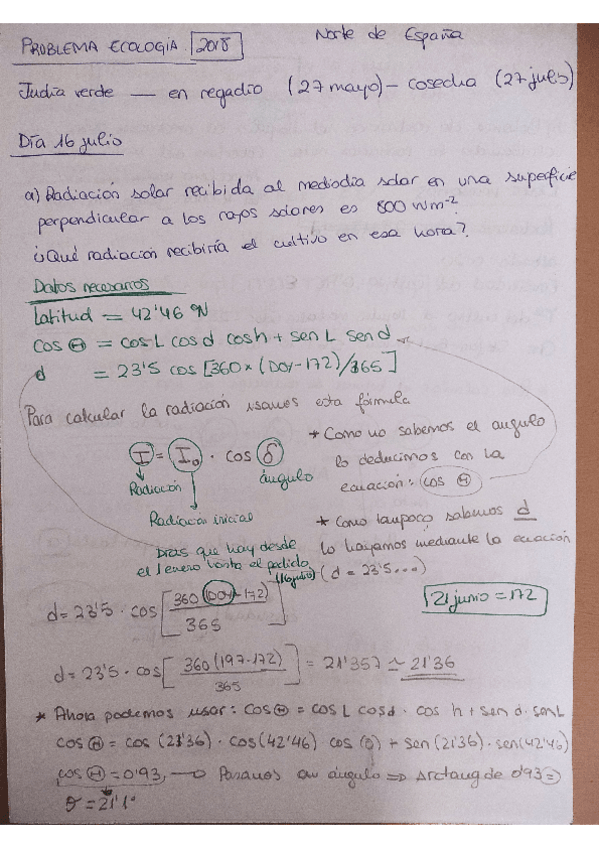 PROBLEMA ECOLOGIA 2018 Norte de España
Judía verde — en regadio (27 mayo) - cosecha (27 julio)
Día 16 julio
a) Radiación solar recibida al mediodia solar en una superficie
perpendicular a los rayos solares es 800 Wm⁻².
¿Qué radiación recibiría el cultivo en esa hora?
Datos necesarios
latitud = 42'46 ºN
cos Θ = cos L cos d cos h + sen L sen d
d = 23'5 cos [360 × (DOY-172)/365]
Para calcular la radiación usamos esta fórmula
I = I₀ · cos δ
Radiación
Radiación inicial
ángulo
* Como no sabemos el angulo
lo deducimos con la
ecuación: cos Θ
* Como tampoco sabemos d
lo hayamos mediante la ecuación
(d = 23'5...)
Dias que hay desde
el 1 enero hasta el pedido
(16 julio)
d = 23'5 · cos [360 (DOY-172) / 365]
21 junio = 172
d = 23'5 · cos [360 (197-172) / 365] = 21'357 ≃ 21'36
* Ahora podemos usar: cos Θ = cos L cos d · cos h + sen d · sen L
cos Θ = cos (21'36) · cos (42'46) cos (0) + sen (21'36) · sen (42'46)
cos Θ = 0'93, → Pasamos a ángulo ⇒ arctang de 0'93 =
θ = 21'1°